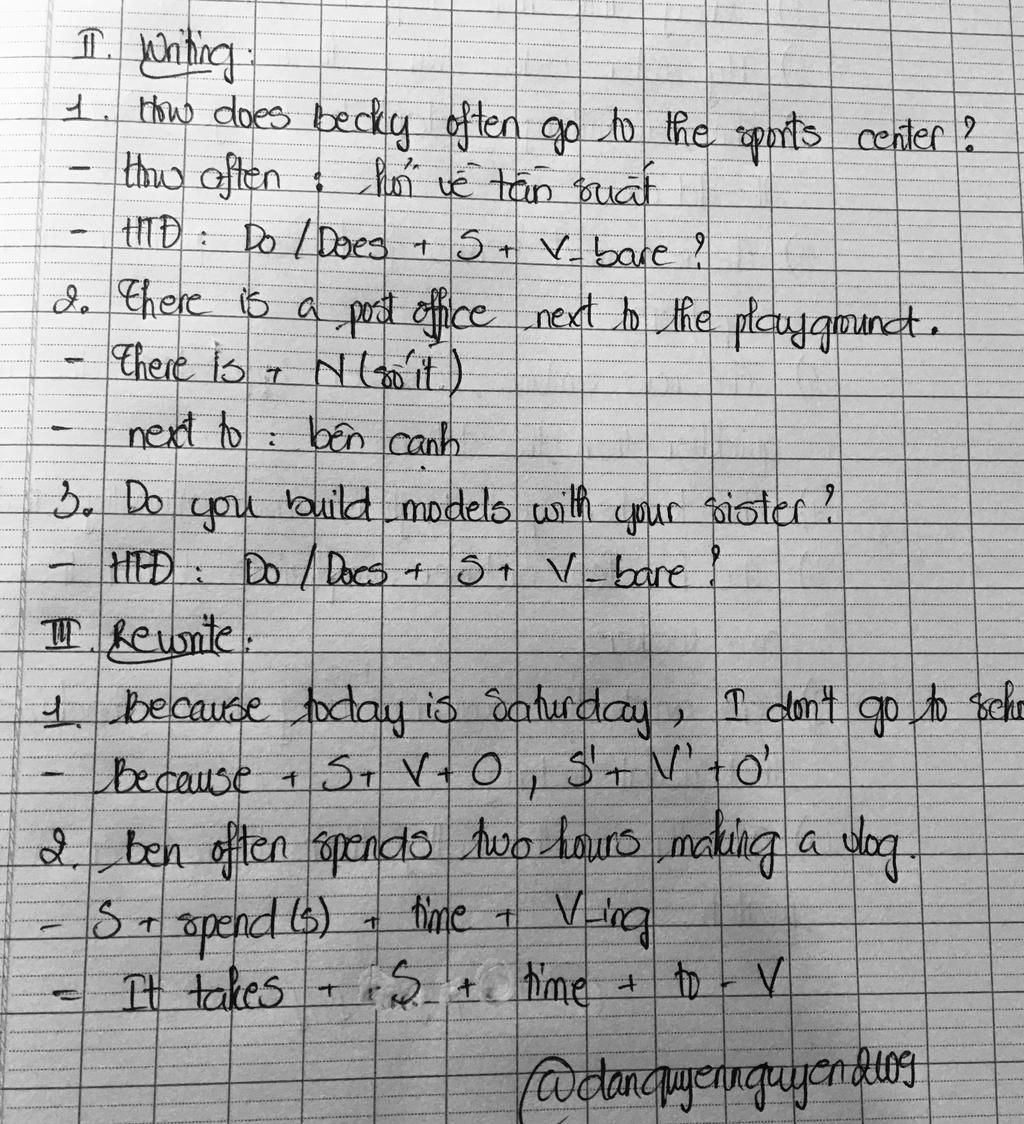 II. Writing:
1. How does becky often go to the sports center?
- How often : hỏi về tần suất
- HTĐ : Do / Does + S + V_bare?
2. There is a post office next to the playground.
- There is + N (số ít)
- next to : bên cạnh
3. Do you build models with your sister?
- HTĐ : Do / Does + S + V_bare?
III. Rewrite:
1. Because today is Saturday, I don't go to scho
- Because + S + V + O, S' + V' + O'
2. ben often spends two hours making a vlog.
- S + spend(s) + time + V-ing
- It takes + S + time + to - V
@danquyennguyen2109